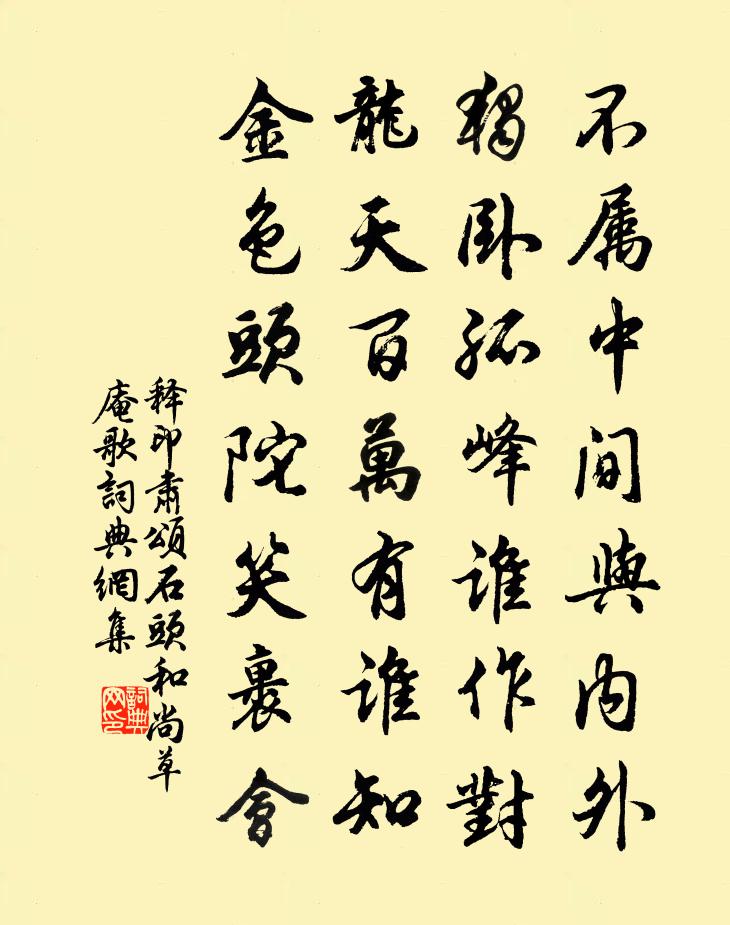 不属中間與内外
獨卧孤峰誰作對
龍天百萬有誰知
金色頭陀笑裹會
释印肅頌石頭和尚草
庵歌詞典網集
詞典
网印